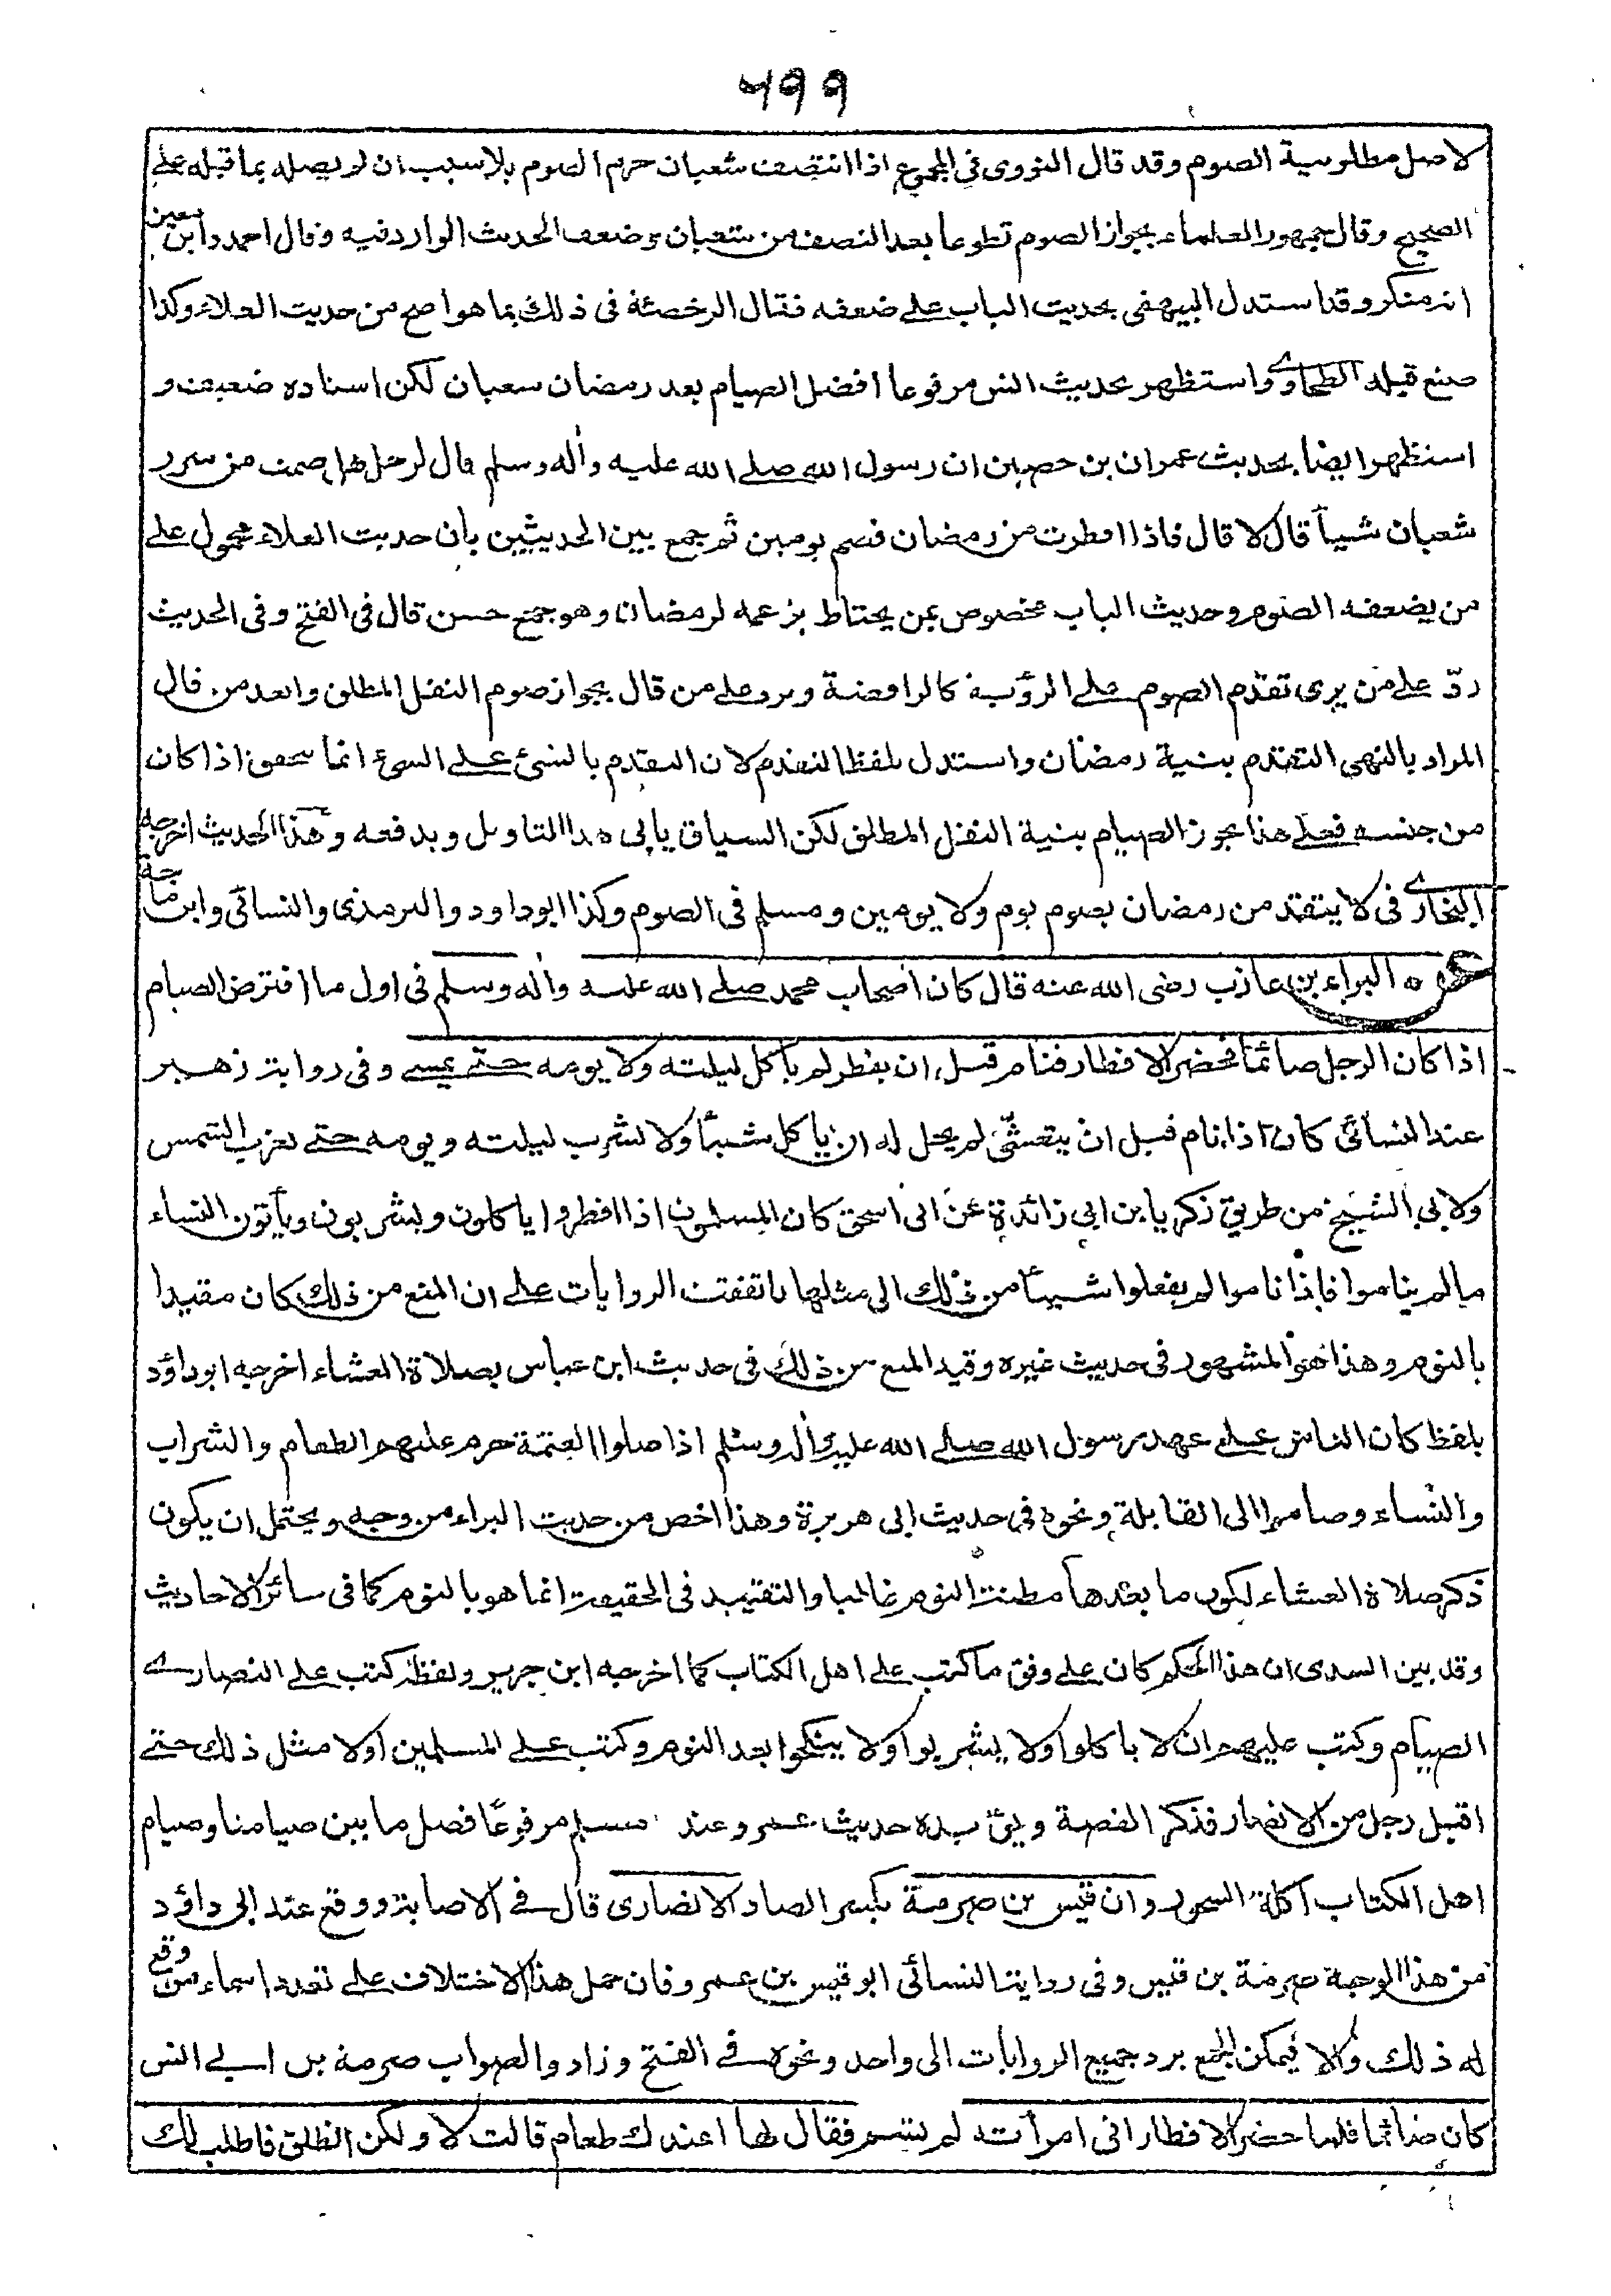 ٦٩٩
لاصل مطلوبية الصوم وقد قال النووى فى المجموع اذا انتصف شعبان حرم الصوم بلا سبب ان لم يصله بما قبله على
الصحيح وقال جمهور العلماء بجواز الصوم تطوعا بعد النصف من شعبان وضعف الحديث الوارد فيه وقال احمد وابن معين
انه منكر وقد استدل البيهقى بحديث الباب على ضعفه فقال الرخصة فى ذلك بما هو اصح من حديث العلاء وكذا
صنع قبله الطحاوى واستظهر بحديث انس مرفوعا افضل الصيام بعد رمضان شعبان لكن اسناده ضعيف و
استظهر ايضا بحديث عمران بن حصين ان رسول الله صلى الله عليه وآله وسلم قال لرجل هل صمت من سرر
شعبان شيأ قال لا قال فاذا افطرت من رمضان فصم يومين ثم جمع بين الحديثين بان حديث العلاء محمول على
من يضعفه الصوم وحديث الباب مخصوص بمن يحتاط بزعمه لرمضان وهو جمع حسن قال فى الفتح وفى الحديث
ردّ على من يرى تقدّم الصوم على الرؤية كالرافضة ويرد على من قال بجواز صوم النفل المطلق وابعد من قال
المراد بالنهى التقدم بنية رمضان واستدل بلفظ التقدم لان التقدم بالشئ على الشئ انما يتحقق اذا كان
من جنسه فعلى هذا يجوز الصيام بنية النفل المطلق لكن السياق يابى هذا التاويل ويدفعه وهذا الحديث اخرجه
البخارى فى لا يتقدمن رمضان بصوم يوم ولا يومين ومسلم فى الصوم وكذا ابو داود والترمذى والنسائى وابن ماجة
عن البراء بن عازب رضى الله عنه قال كان اصحاب محمد صلى الله عليه وآله وسلم فى اول ما افترض الصيام
اذا كان الرجل صائما فحضر الافطار فنام قبل ان يفطر لم يأكل ليلته ولا يومه حتى يمسى وفى رواية زهير
عند النسائى كان اذا نام قبل ان يتعشّى لم يحل له ان يأكل شيأ ولا يشرب ليلته ويومه حتى تغرب الشمس
ولابى الشيخ من طريق زكريا بن ابى زائدة عن ابى اسحق كان المسلمون اذا افطروا ياكلون ويشربون ويأتون النساء
ما لم يناموا فاذا ناموا لم يفعلوا شيأ من ذلك الى مثلها فاتفقت الروايات على ان المنع من ذلك كان مقيدا
بالنوم وهذا هو المشهور فى حديث غيره وقيد المنع من ذلك فى حديث ابن عباس بصلاة العشاء اخرجه ابو داؤد
بلفظ كان الناس على عهد رسول الله صلى الله عليه وآله وسلم اذا صلوا العتمة حرم عليهم الطعام والشراب
والنساء وصاموا الى القابلة ونحوه فى حديث ابى هريرة وهذا اخص من حديث البراء من وجه ويحتمل ان يكون
ذكر صلاة العشاء لكون ما بعدها مظنة النوم غالبا والتقييد فى الحقيقة انما هو بالنوم كما فى سائر الاحاديث
وقد بين السدى ان هذا الحكم كان على وفق ما كتب على اهل الكتاب كما اخرجه ابن جرير ولفظه كتب على النصارى
الصيام وكتب عليهم ان لا ياكلوا ولا يشربوا ولا ينكحوا بعد النوم وكتب على المسلمين اولا مثل ذلك حتى
اقبل رجل من الانصار فذكر القصة ويؤيده حديث عمرو عند مسلم مرفوعًا فصل ما بين صيامنا وصيام
اهل الكتاب اكلة السحور وان قيس بن صرمة بكسر الصاد الانصارى قال فى الاصابة ووقع عند ابى داؤد
من هذا الوجه صرمة بن قيس وفى رواية النسائى ابو قيس بن عمرو فان حمل هذا الاختلاف على تعدد اسماء من وقع
له ذلك والا فيمكن الجمع برد جميع الروايات الى واحد ونحوه فى الفتح وزاد والصواب صرمة بن ابى انس
كان صائما فلما حضر الافطار اتى امرأته لم تسم فقال لها اعندك طعام قالت لا ولكن انطلق فاطلب لك